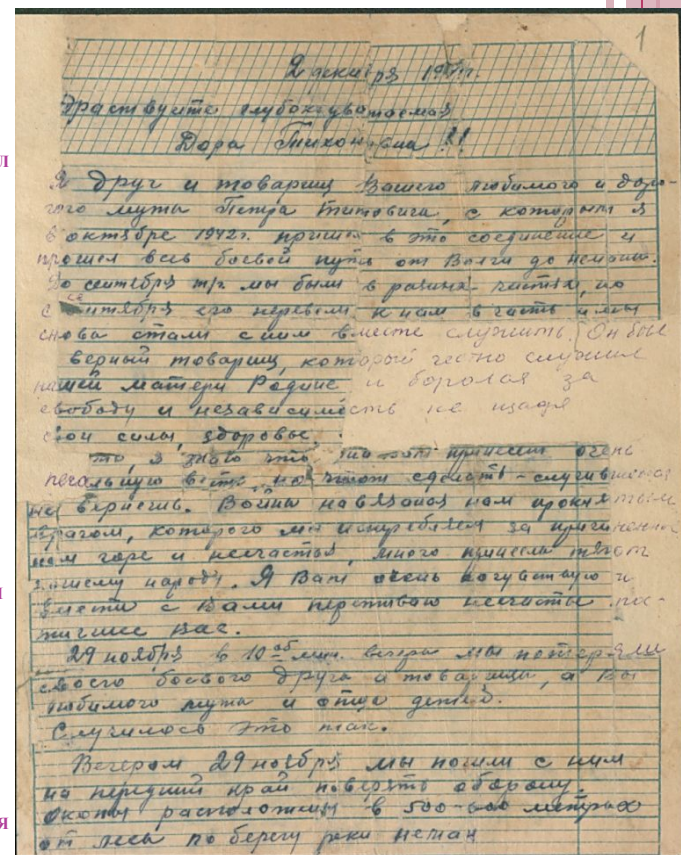 1
2 декабря 194 г.
Здраствуйте глубокоуважаемая
Дора Тихоновна !!
Я друг и товарищ Вашего любимого и доро-
гого мужа Петра Титовича, с которым я
в октябре 1942 г. пришел в это соединение и
прошел весь боевой путь от Волги до Немана.
До сентября т/г. мы были в разных частях, но
с сентября его перевели к нам в часть и мы
снова стали с ним вместе служить. Он был
верный товарищ, который честно служил
нашей матери Родине и боролся за
свободу и независимость не щадя
свои силы, здоровье,
то, я знаю что, принесет очень
печальную весть, но что сделать - случившегося
не вернешь. Война навязана нам проклятым
врагом, которого мы истребляем за причиненное
нам горе и несчастья, много принесли
нашему народу. Я Вам очень сочувствую и
вместе с Вами переживаю несчастье по-
стигшее Вас.
29 ноября в 10 мин. вечера мы потеряли
своего боевого друга и товарища, а Вы
любимого мужа и отца детей.
Случилось это так.
Вечером 29 ноября мы пошли с ним
на передний край поверять оборону.
Окопы расположены в 500-600 метрах
от леса по берегу реки Неман
л
я